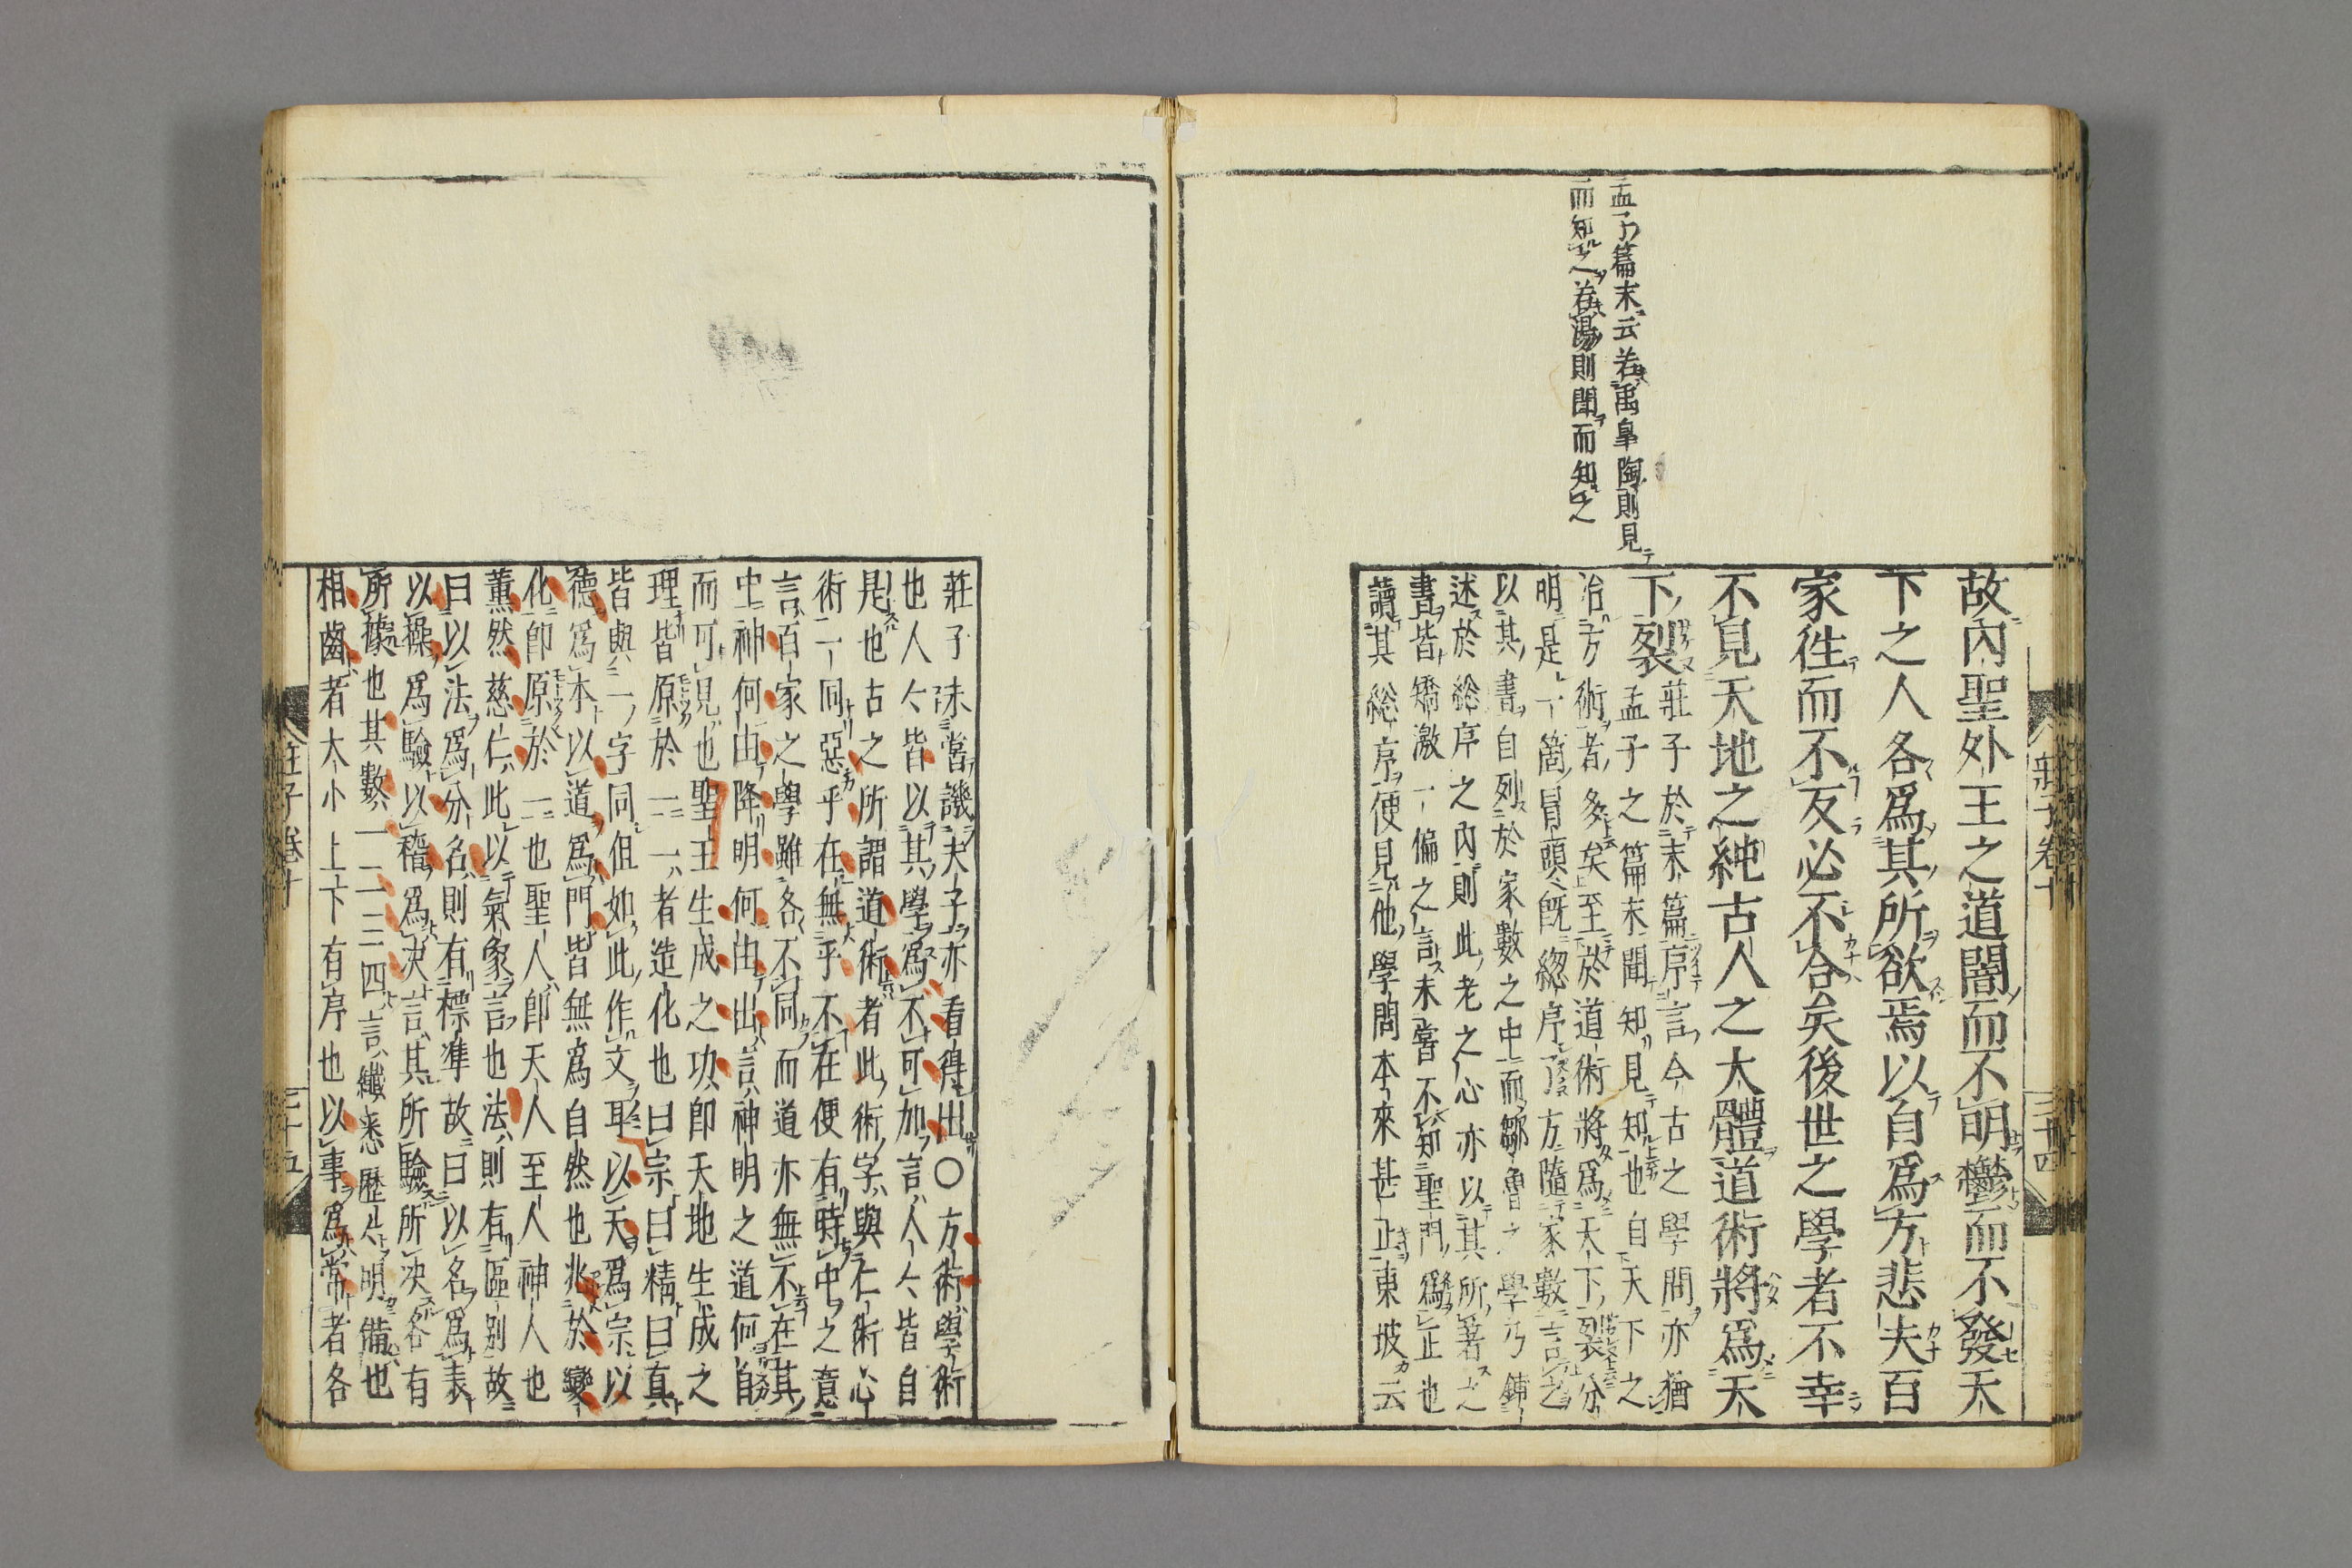 孟子篇末云若禹皐陶則見
而知之若湯則聞而知之
莊子卷十
三十四
故內聖外王之道闇而不明鬱而不發天
下之人各爲其所欲焉以自爲方悲夫百
家徃而不反必不合矣後世之學者不幸
不見天地之純古人之大體道術將爲天
下裂 莊子於末篇序言今古之學問亦猶
孟子之篇末聞知見知也自天下之
治方術者多矣至於道術將爲天下裂分
明是一箇冐頭旣緫序了方隨家數言之
以其書自列於家數之中而鄒魯之學乃鋪
述於緫序之內則此老之心亦以其所著之
書皆矯激一偏之言未嘗不知聖門爲正也
讀其緫序便見他學問本來甚正東坡云
莊子未嘗譏夫子亦看得出〇方術學術
也人人皆以其學爲不可加言人人皆自
是也古之所謂道術者此術字與仁術心
術一同惡乎在無乎不在便有時中之意
言百家之學雖各不同而道亦無不在其
中神何由降明何由出言神明之道何自
而可見也聖王生成之功卽天地生成之
理皆原於一一者造化也曰宗曰精曰真
皆與一字同但如此作文耳以天爲宗以
德爲本以道爲門皆無爲自然也兆於變
化卽原於一也聖人卽天人至人神人也
薰然慈仁此以氣象言也法則有區別故
曰以法爲分名則有標準故曰以名爲表
以操爲驗以稽爲決言其所驗所決各有
所據也其數一二三四言纖悉歷歷明備也
相齒者大小上下有序也以事爲常者各
莊子卷十
三十五